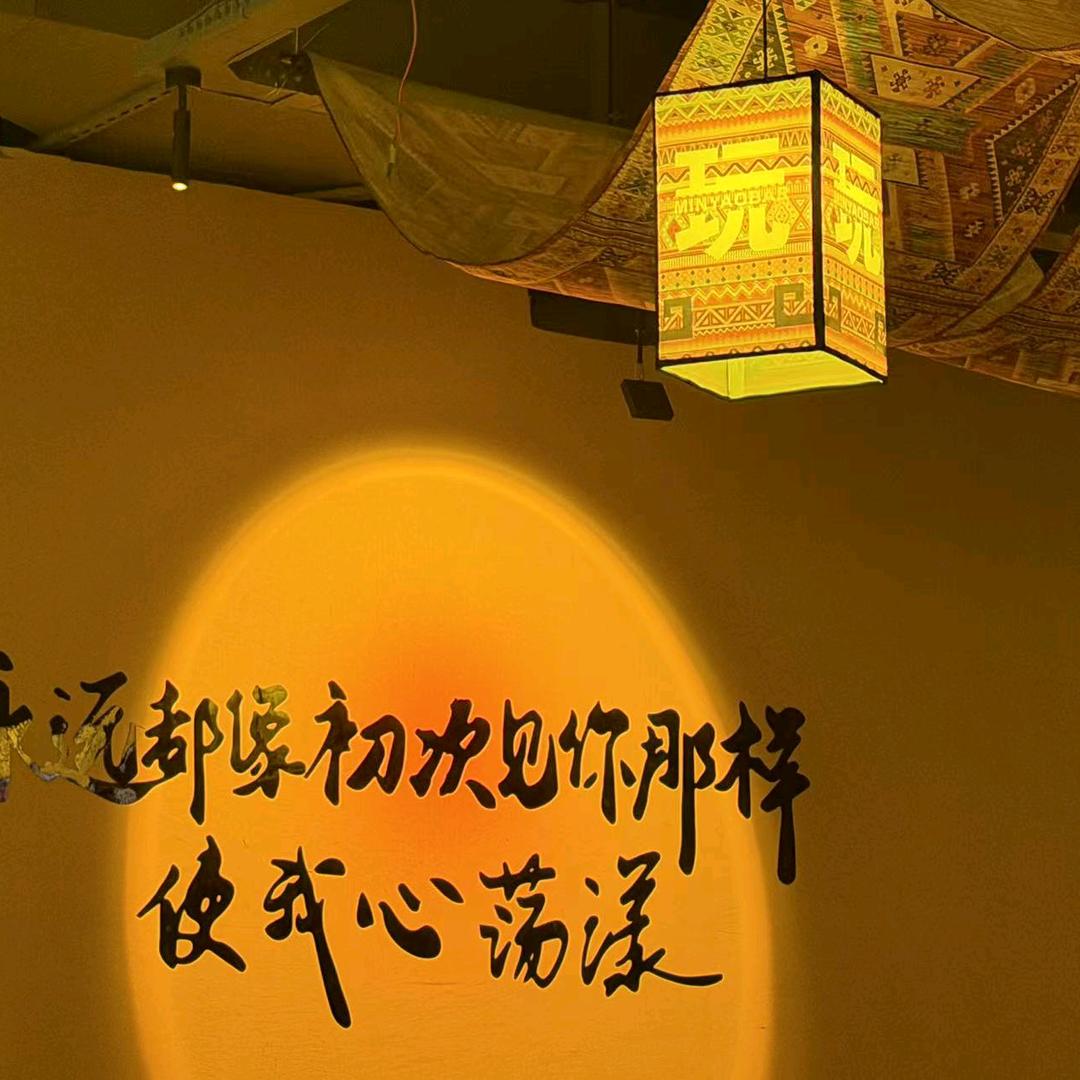 玩
MINYAOBAR
玩
MINYAOBAR
永远都像初次见你那样
使我心荡漾